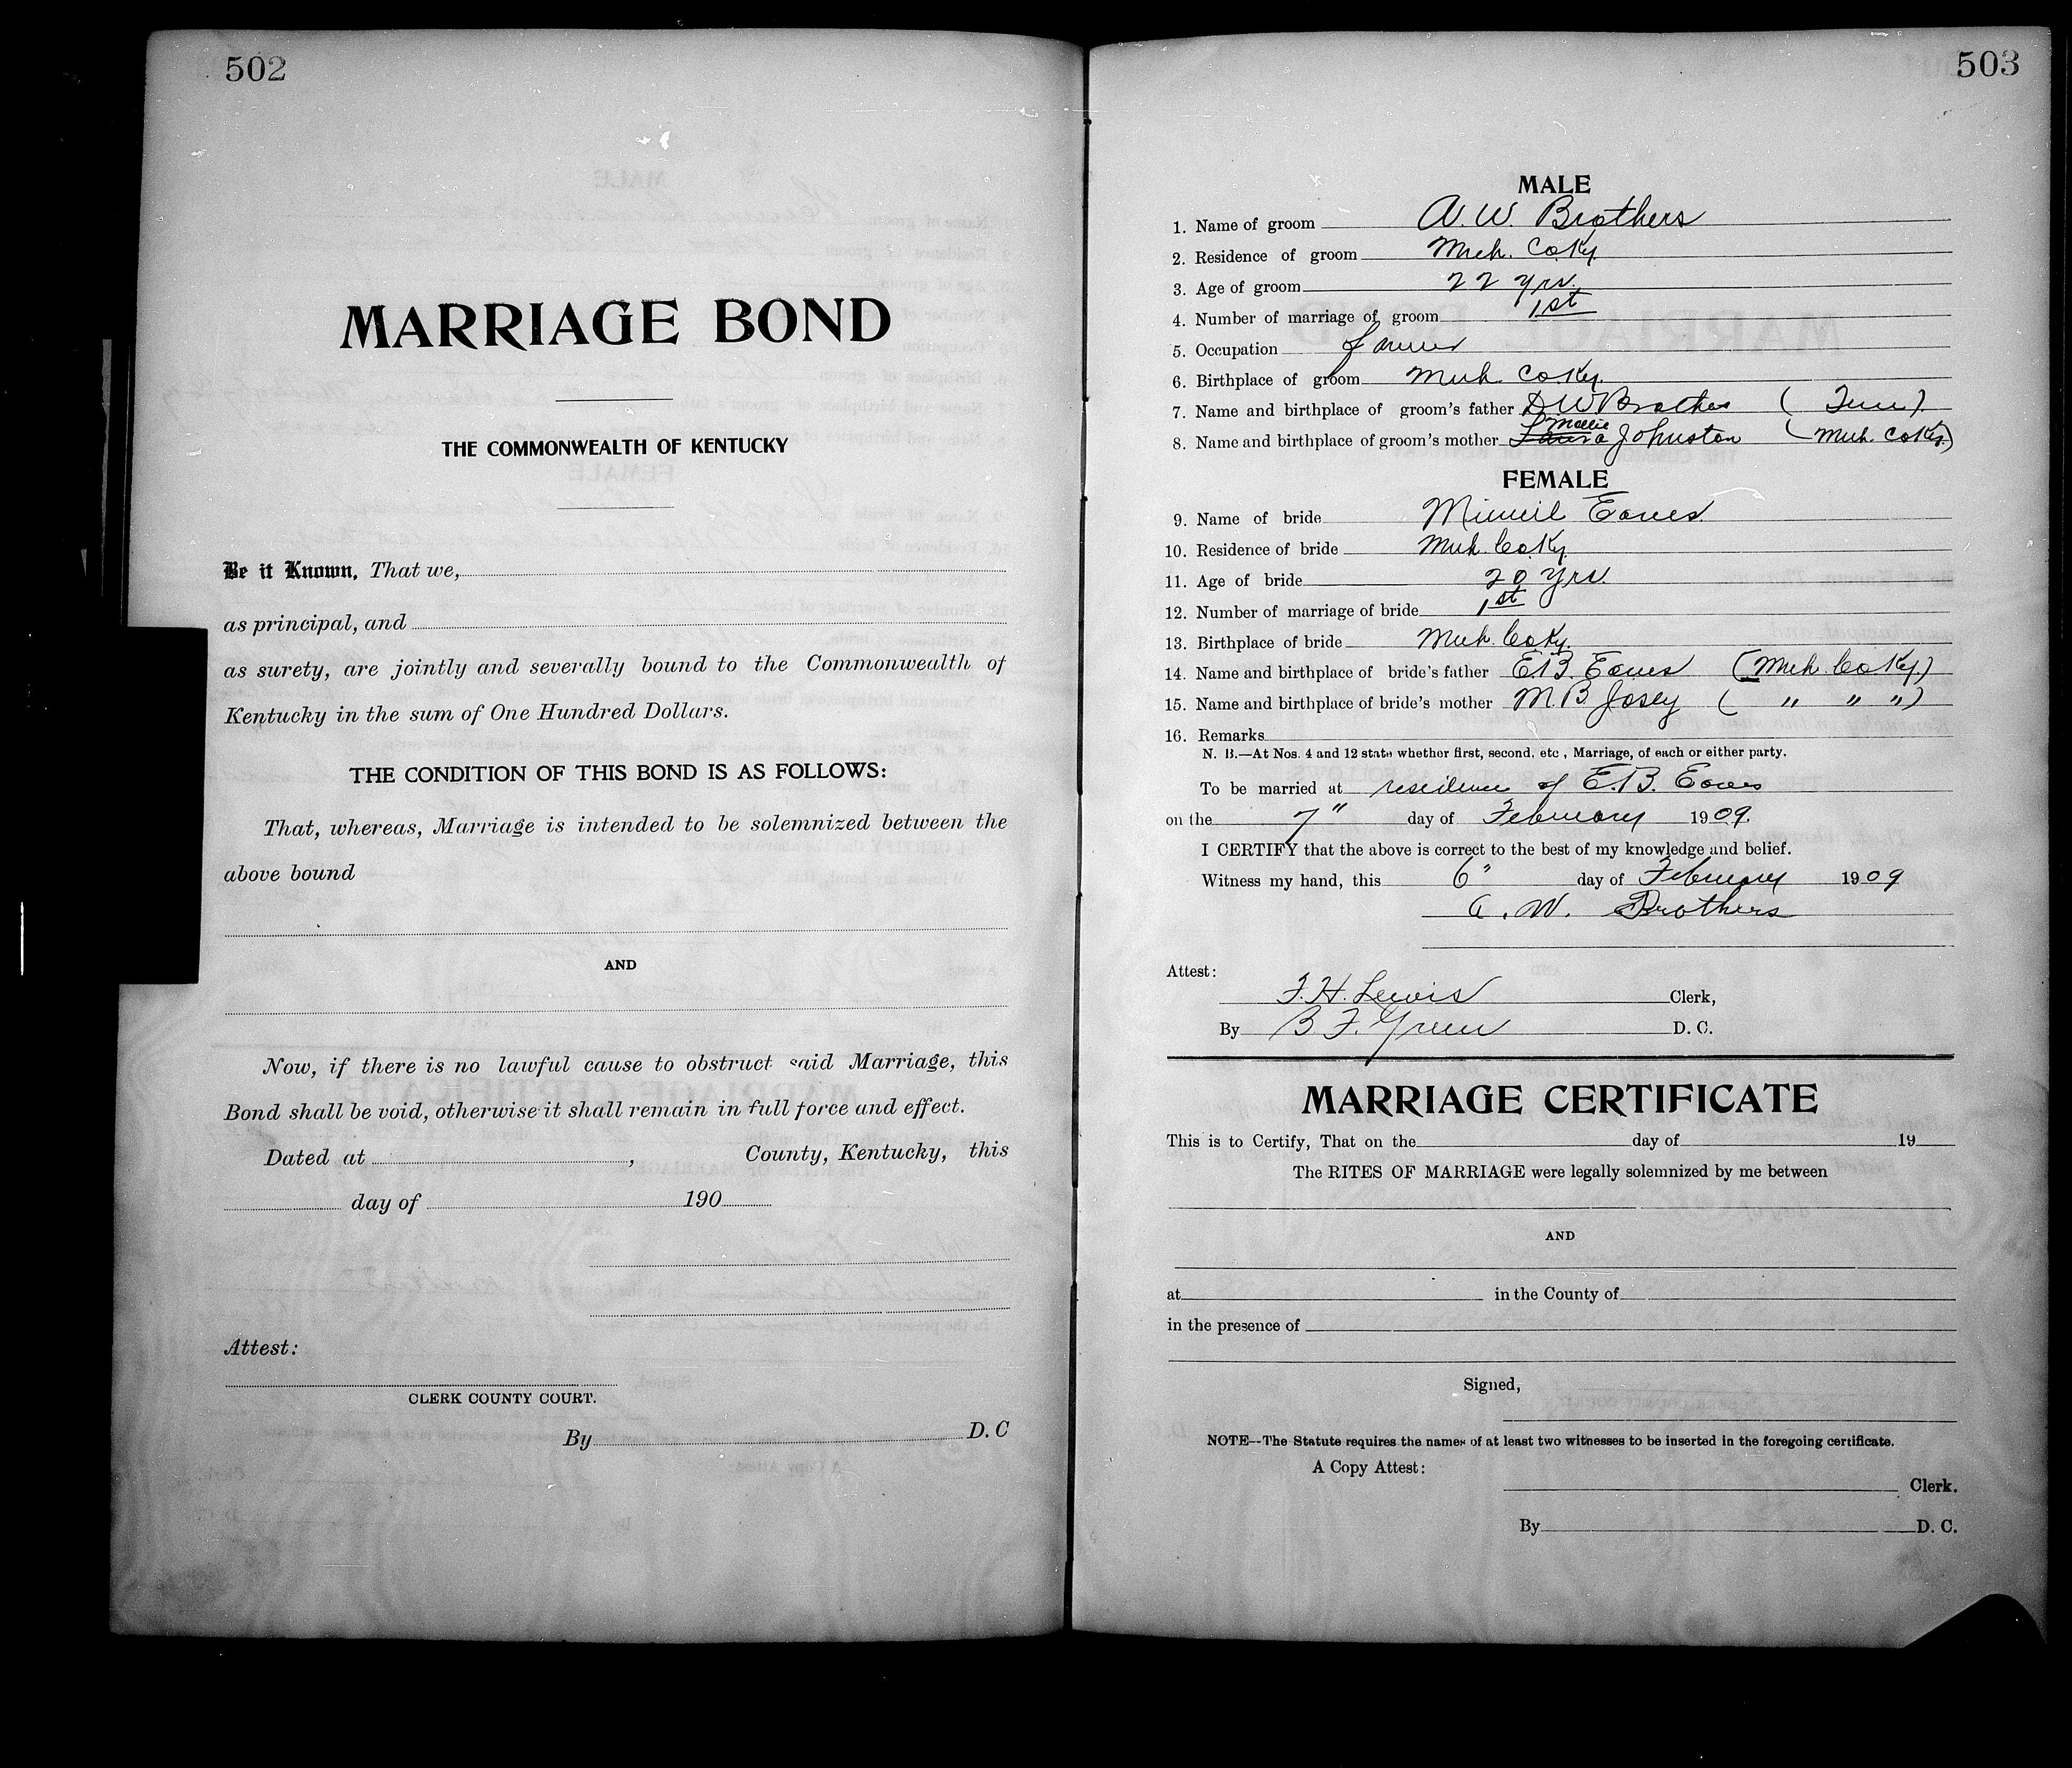 502
MARRIAGE BOND
THE COMMONWEALTH OF KENTUCKY
Be it Known, That we,
as principal, and
as surety, are jointly and severally bound to the Commonwealth of
Kentucky in the sum of One Hundred Dollars.
THE CONDITION OF THIS BOND IS AS FOLLOWS:
That, whereas, Marriage is intended to be solemnized between the
above bound
AND
Now, if there is no lawful cause to obstruct said Marriage, this
Bond shall be void, otherwise it shall remain in full force and effect.
Dated at , County, Kentucky, this
day of 190
Attest:
CLERK COUNTY COURT.
By D. C
503
MALE
1. Name of groom A. W. Brothers
2. Residence of groom Muh. Co Ky.
3. Age of groom 22 yrs.
4. Number of marriage of groom 1st
5. Occupation farmer
6. Birthplace of groom Muh. Co Ky.
7. Name and birthplace of groom's father D W Brothers ( Tenn ).
8. Name and birthplace of groom's mother Laura Mollie Johnston ( Muh. Co Ky.)
FEMALE
9. Name of bride Minnie Eaves
10. Residence of bride Muh. Co Ky.
11. Age of bride 20 yrs.
12. Number of marriage of bride 1st
13. Birthplace of bride Muh. Co Ky.
14. Name and birthplace of bride's father E.B. Eaves (Muh. Co Ky.)
15. Name and birthplace of bride's mother M. B. Josey ( " " ")
16. Remarks
N. B.—At Nos. 4 and 12 state whether first, second, etc , Marriage, of each or either party.
To be married at residence of E.B. Eaves
on the 7" day of February 1909.
I CERTIFY that the above is correct to the best of my knowledge and belief.
Witness my hand, this 6" day of February 1909
A. W. Brothers
Attest:
F. H. Lewis Clerk,
By B F. Green D. C.
MARRIAGE CERTIFICATE
This is to Certify, That on the day of 19
The RITES OF MARRIAGE were legally solemnized by me between
AND
at in the County of
in the presence of
Signed,
NOTE--The Statute requires the names of at least two witnesses to be inserted in the foregoing certificate.
A Copy Attest:
Clerk.
By D. C.